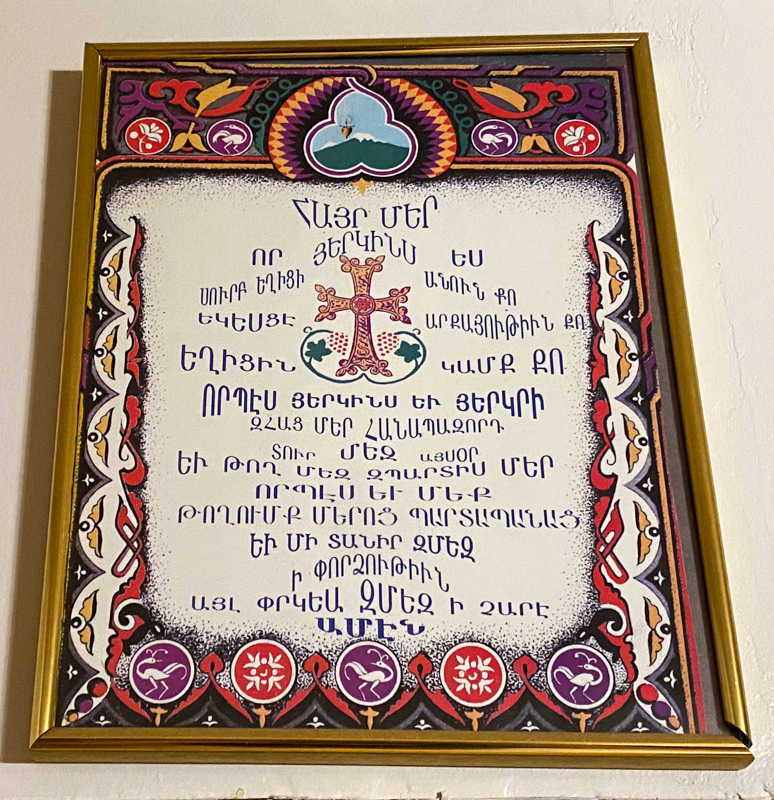 ՀԱՅՐ ՄԵՐ
ՈՐ ՅԵՐԿԻՆՍ ԵՍ
ՍՈՒՐԲ ԵՂԻՑԻ ԱՆՈՒՆ ՔՈ
ԵԿԵՍՑԷ ԱՐՔԱՅՈՒԹԻՒՆ ՔՈ
ԵՂԻՑԻՆ ԿԱՄՔ ՔՈ
ՈՐՊԷՍ ՅԵՐԿԻՆՍ ԵՒ ՅԵՐԿՐԻ
ԶՀԱՑ ՄԵՐ ՀԱՆԱՊԱԶՈՐԴ
ՏՈՒՐ ՄԵԶ ԱՅՍՕՐ
ԵՒ ԹՈՂ ՄԵԶ ԶՊԱՐՏԻՍ ՄԵՐ
ՈՐՊԷՍ ԵՒ ՄԵՔ
ԹՈՂՈՒՄՔ ՄԵՐՈՑ ՊԱՐՏԱՊԱՆԱՑ
ԵՒ ՄԻ ՏԱՆԻՐ ԶՄԵԶ
Ի ՓՈՐՁՈՒԹԻՒՆ
ԱՅԼ ՓՐԿԵԱ ԶՄԵԶ Ի ՉԱՐԷ
ԱՄԷՆ